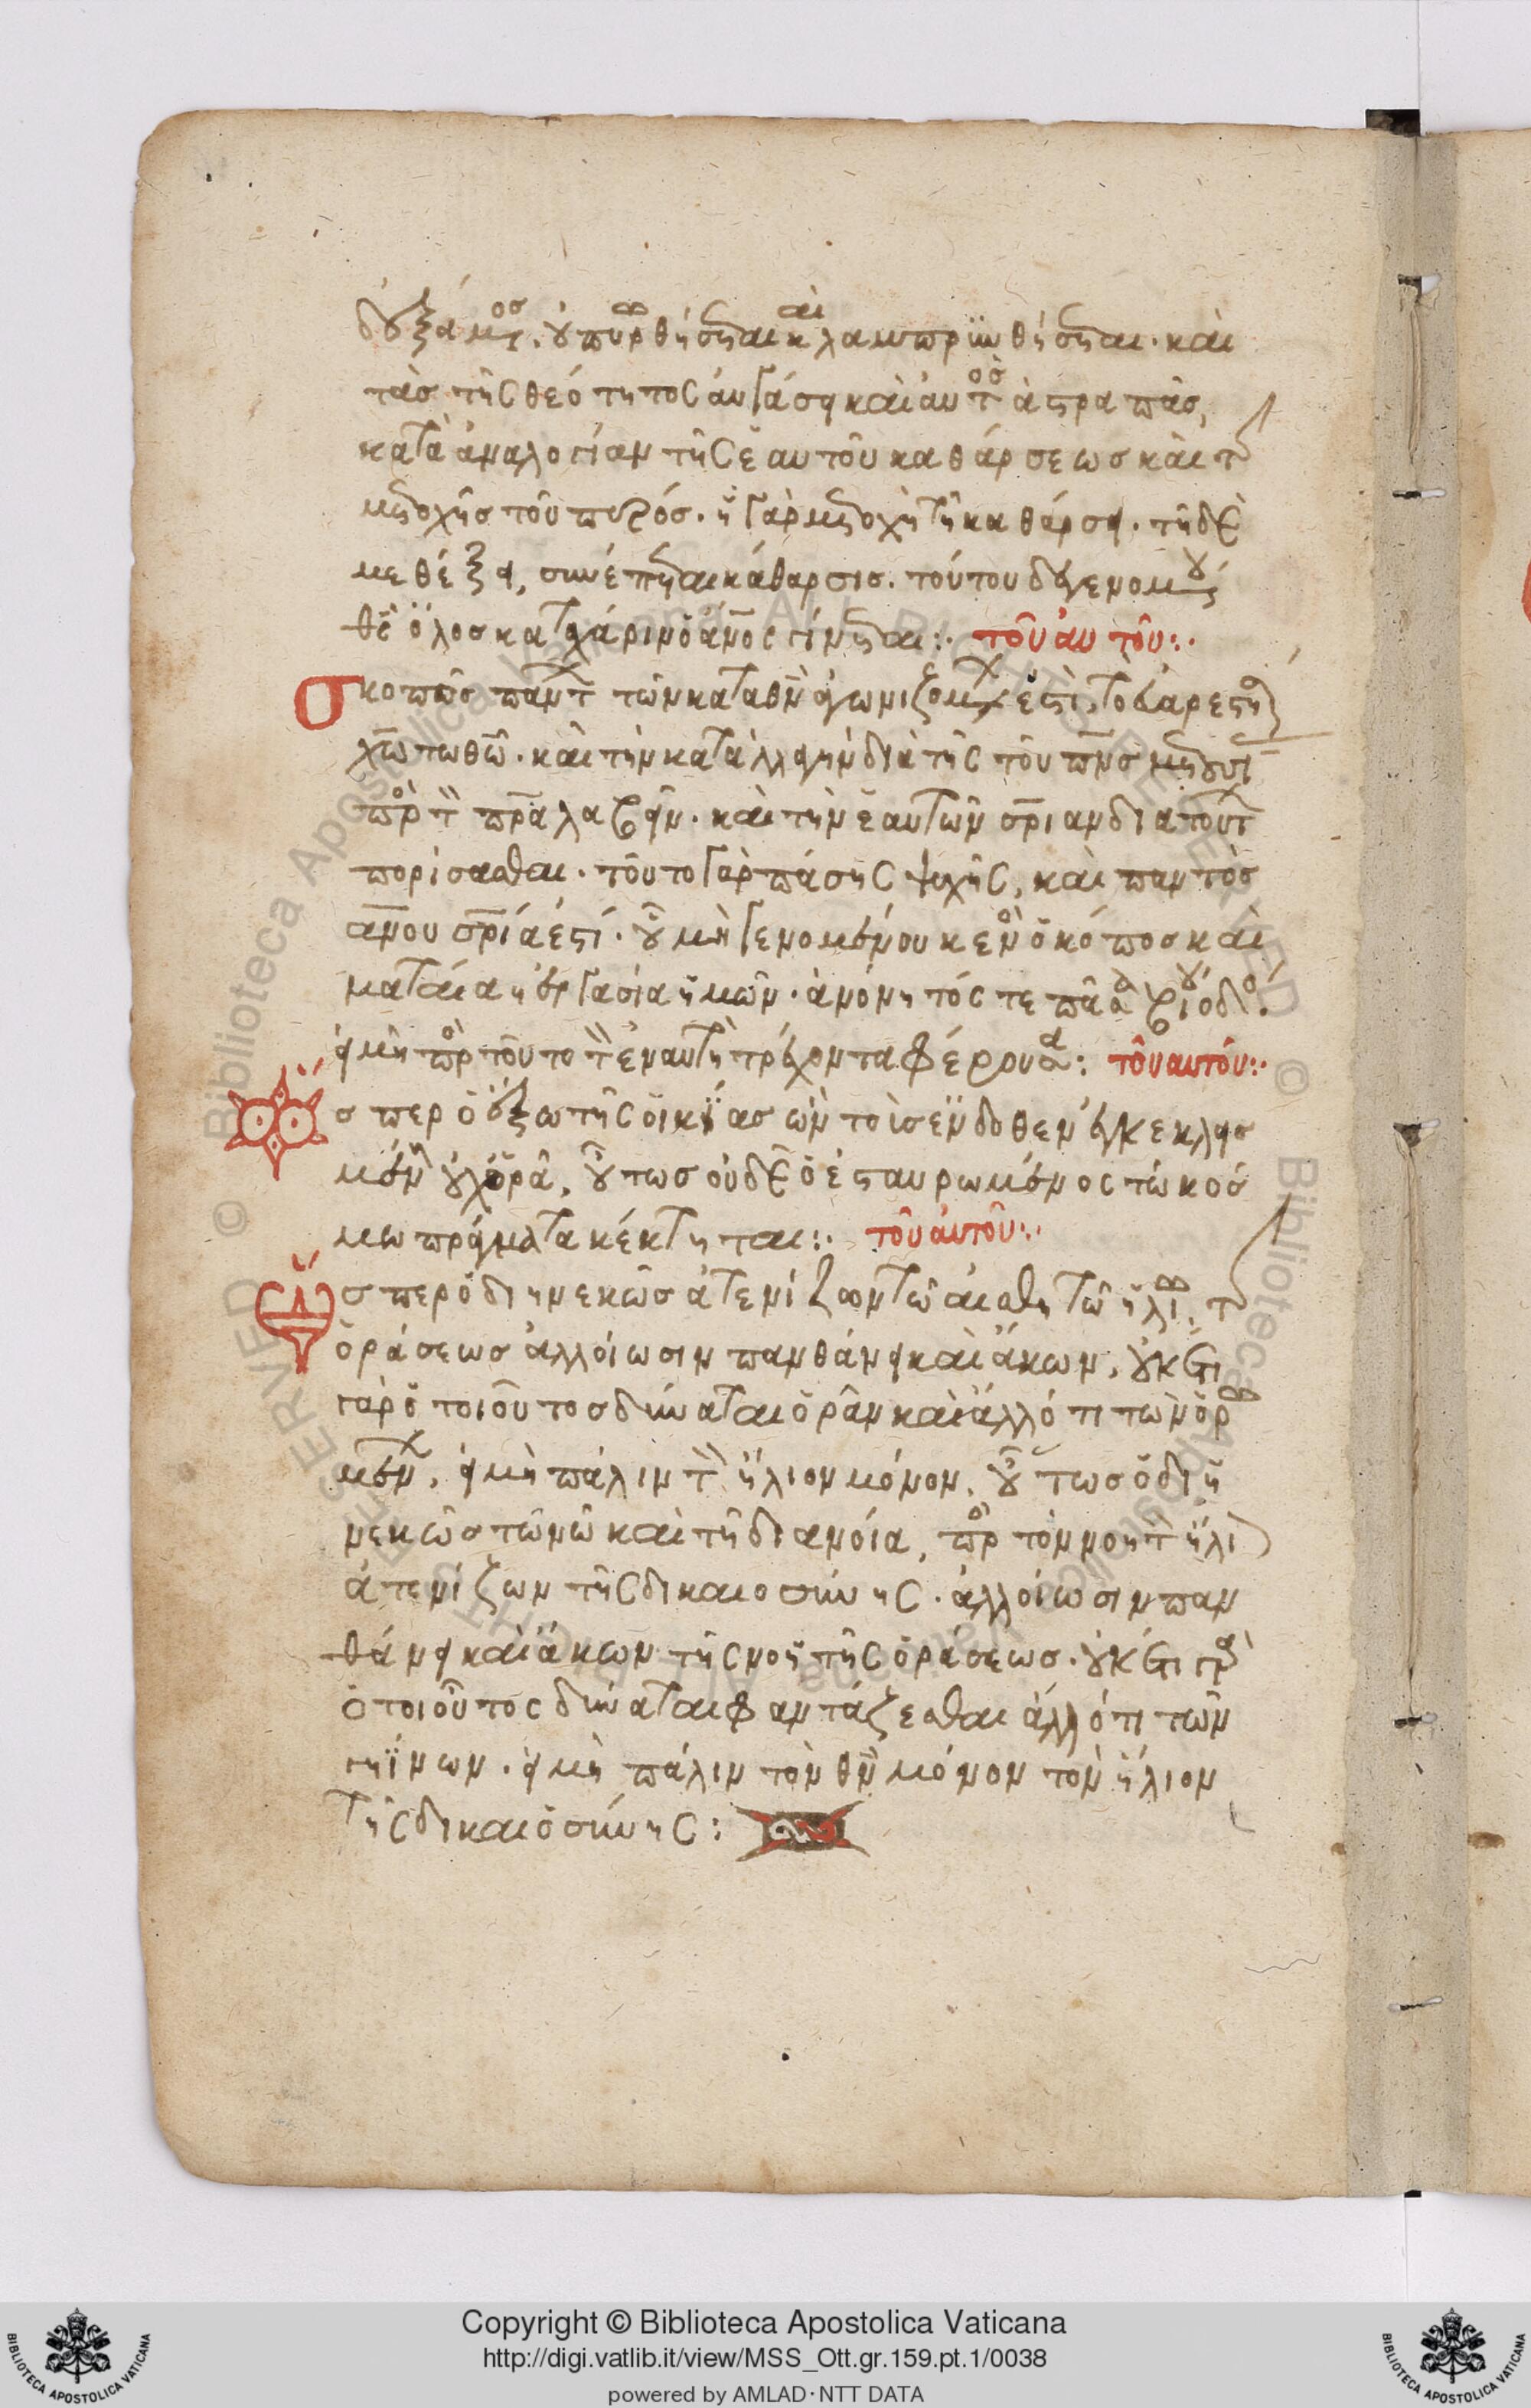 τὰσ τῆς θεότητος αὐγάσει καὶ αὐτὸσ ἀστραπὰσ,
κατὰ ἀναλογίαν τῆς ἑαυτοῦ καθάρσεωσ καὶ τῆς
μετοχῆσ τοῦ πυρόσ. ἡ γὰρ μετοχὴ τῆ καθάρσει. τῆ δὲ
μεθέξει, συνέπεται κάθαρσισ. τούτου δὲ γενομένου
θεὸσ ὅλοσ κατὰ χάριν ὁ ἄνος γίνεται:· τοῦ αὐτοῦ:·
σκοπὸσ πάντων τῶν κατὰ θν ἀγωνιζομένων ἐστὶ, τὸ εὐαρεστῆσαι
χω τω θω. καὶ τὴν καταλλαγὴν διὰ τῆς τοῦ πνσ μετουσίας
πρὸς τὸν πρα λαβεῖν. καὶ τὴν ἑαυτῶν σριαν διὰ τούτων
πορίσασθαι. τοῦτο γὰρ πάσης ψυχῆς, καὶ παντὸσ
ανου σρία ἐστί. οὗ μὴ γενομένου κενὸσ ὁ κόποσ καὶ
ματαία ἡ ἐργασία ἡμῶν. ἀνόνητός τε πᾶσα βίου ὁδός.
εἰ μὴ πρὸς τοῦτο τὸν ἐν αὐτῆ τρέχοντα φέρουσα: τοῦ αυτοῦ:·
ὥσπερ ὁ ἔξω τῆς οἰκίασ ὢν τοῖσ ἔνδοθεν ἐγκεκλεισ
μένοις οὐχ ὁρᾶ, οὕτωσ οὐδὲ ὁ ἐσταυρωμένος τῶ κόσ
μω πράγματα κέκτηται:· τοῦ αὐτοῦ:·
ὥσπερ ὁ διηνεκῶσ ἀτενίζων τῶ αἰσθητῶ ἡλίω, τῆς
ὁράσεωσ ἀλλοίωσιν πανθάνει καὶ ἄκων. οὐκ ἔτι
γὰρ ὁ τοιοῦτοσ δύναται ὁρᾶν καὶ ἄλλό τι τῶν ὁρω
μένων, εἰ μὴ πάλιν τὸν ἥλιον μόνον. οὕτωσ ὁ διη
νεκῶσ τῶ νῶ καὶ τῆ διανοία, πρὸς τὸν νοητὸν ἥλιον
ἀτενίζων τῆς δικαιοσύνης. ἀλλοίωσιν παν
θάνει καὶ ἄκων τῆς νοητῆς ὁράσεωσ. οὐκ ἔτι γὰρ
ὁ τοιοῦτος δύναται φαντάζεσθαι ἄλλό τι τῶν
γηΐνων. εἰ μὴ πάλιν τὸν θν μόνον τὸν ἥλιον
τῆς δικαιοσύνης:
Copyright © Biblioteca Apostolica Vaticana
http://digi.vatlib.it/view/MSS_Ott.gr.159.pt.1/0038
powered by AMLAD·NTT DATA